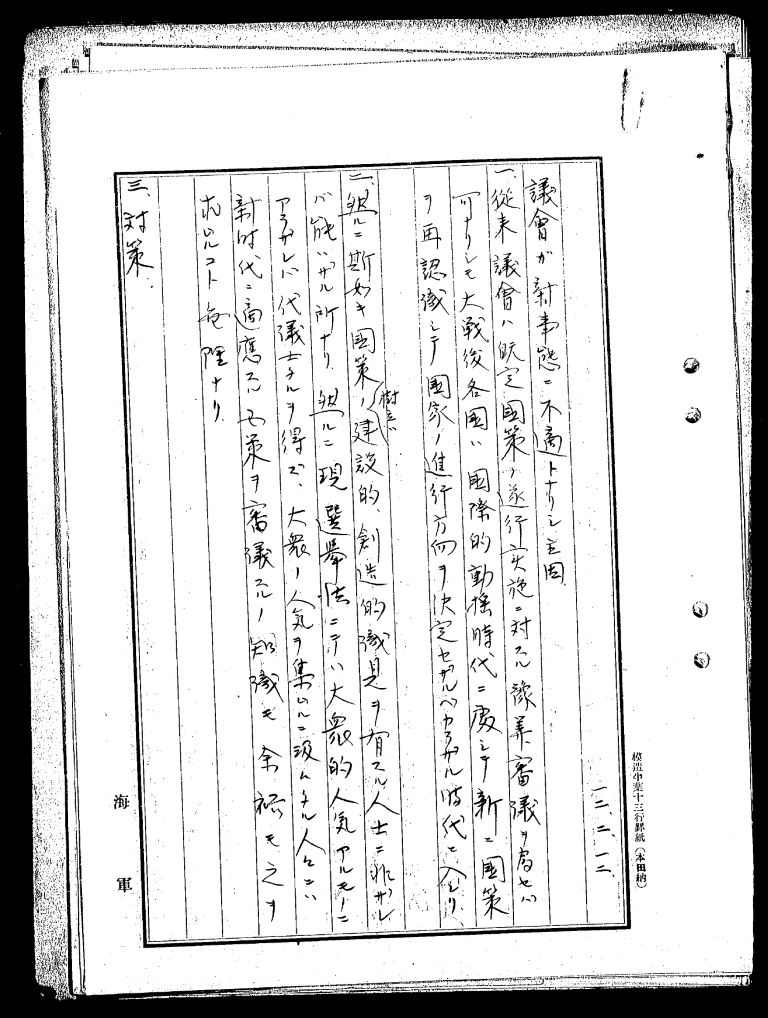 模造半葉十三行罫紙（本田納）
一二、二、一二、
議會ガ新事態ニ不適トナリシ主因
一、従来議會ハ既定國策ノ遂行実施ニ対スル豫算審議ヲ為セバ
可ナリシモ大戦後各国ハ國際的動揺時代ニ處シテ新ニ國策
ヲ再認識シテ國家ノ進行方向ヲ決定セザルベカラザル時代ニ入レリ
二、然ルニ斯如キ國策ノ樹立ハ建設的、創造的識見ヲ有スル人士ニ非ザレ
バ能ハザル所ナリ 然ルニ現選挙法ニテハ大衆的人気アルモノニ
アラザレバ代議士タルヲ得ズ、大衆ノ人気ヲ集ムルニ汲々タル人々ニハ
新時代ニ適應スル国策ヲ審議スルノ知識モ余裕モ之ヲ
求ムルコト無理ナリ
三、対策
海軍